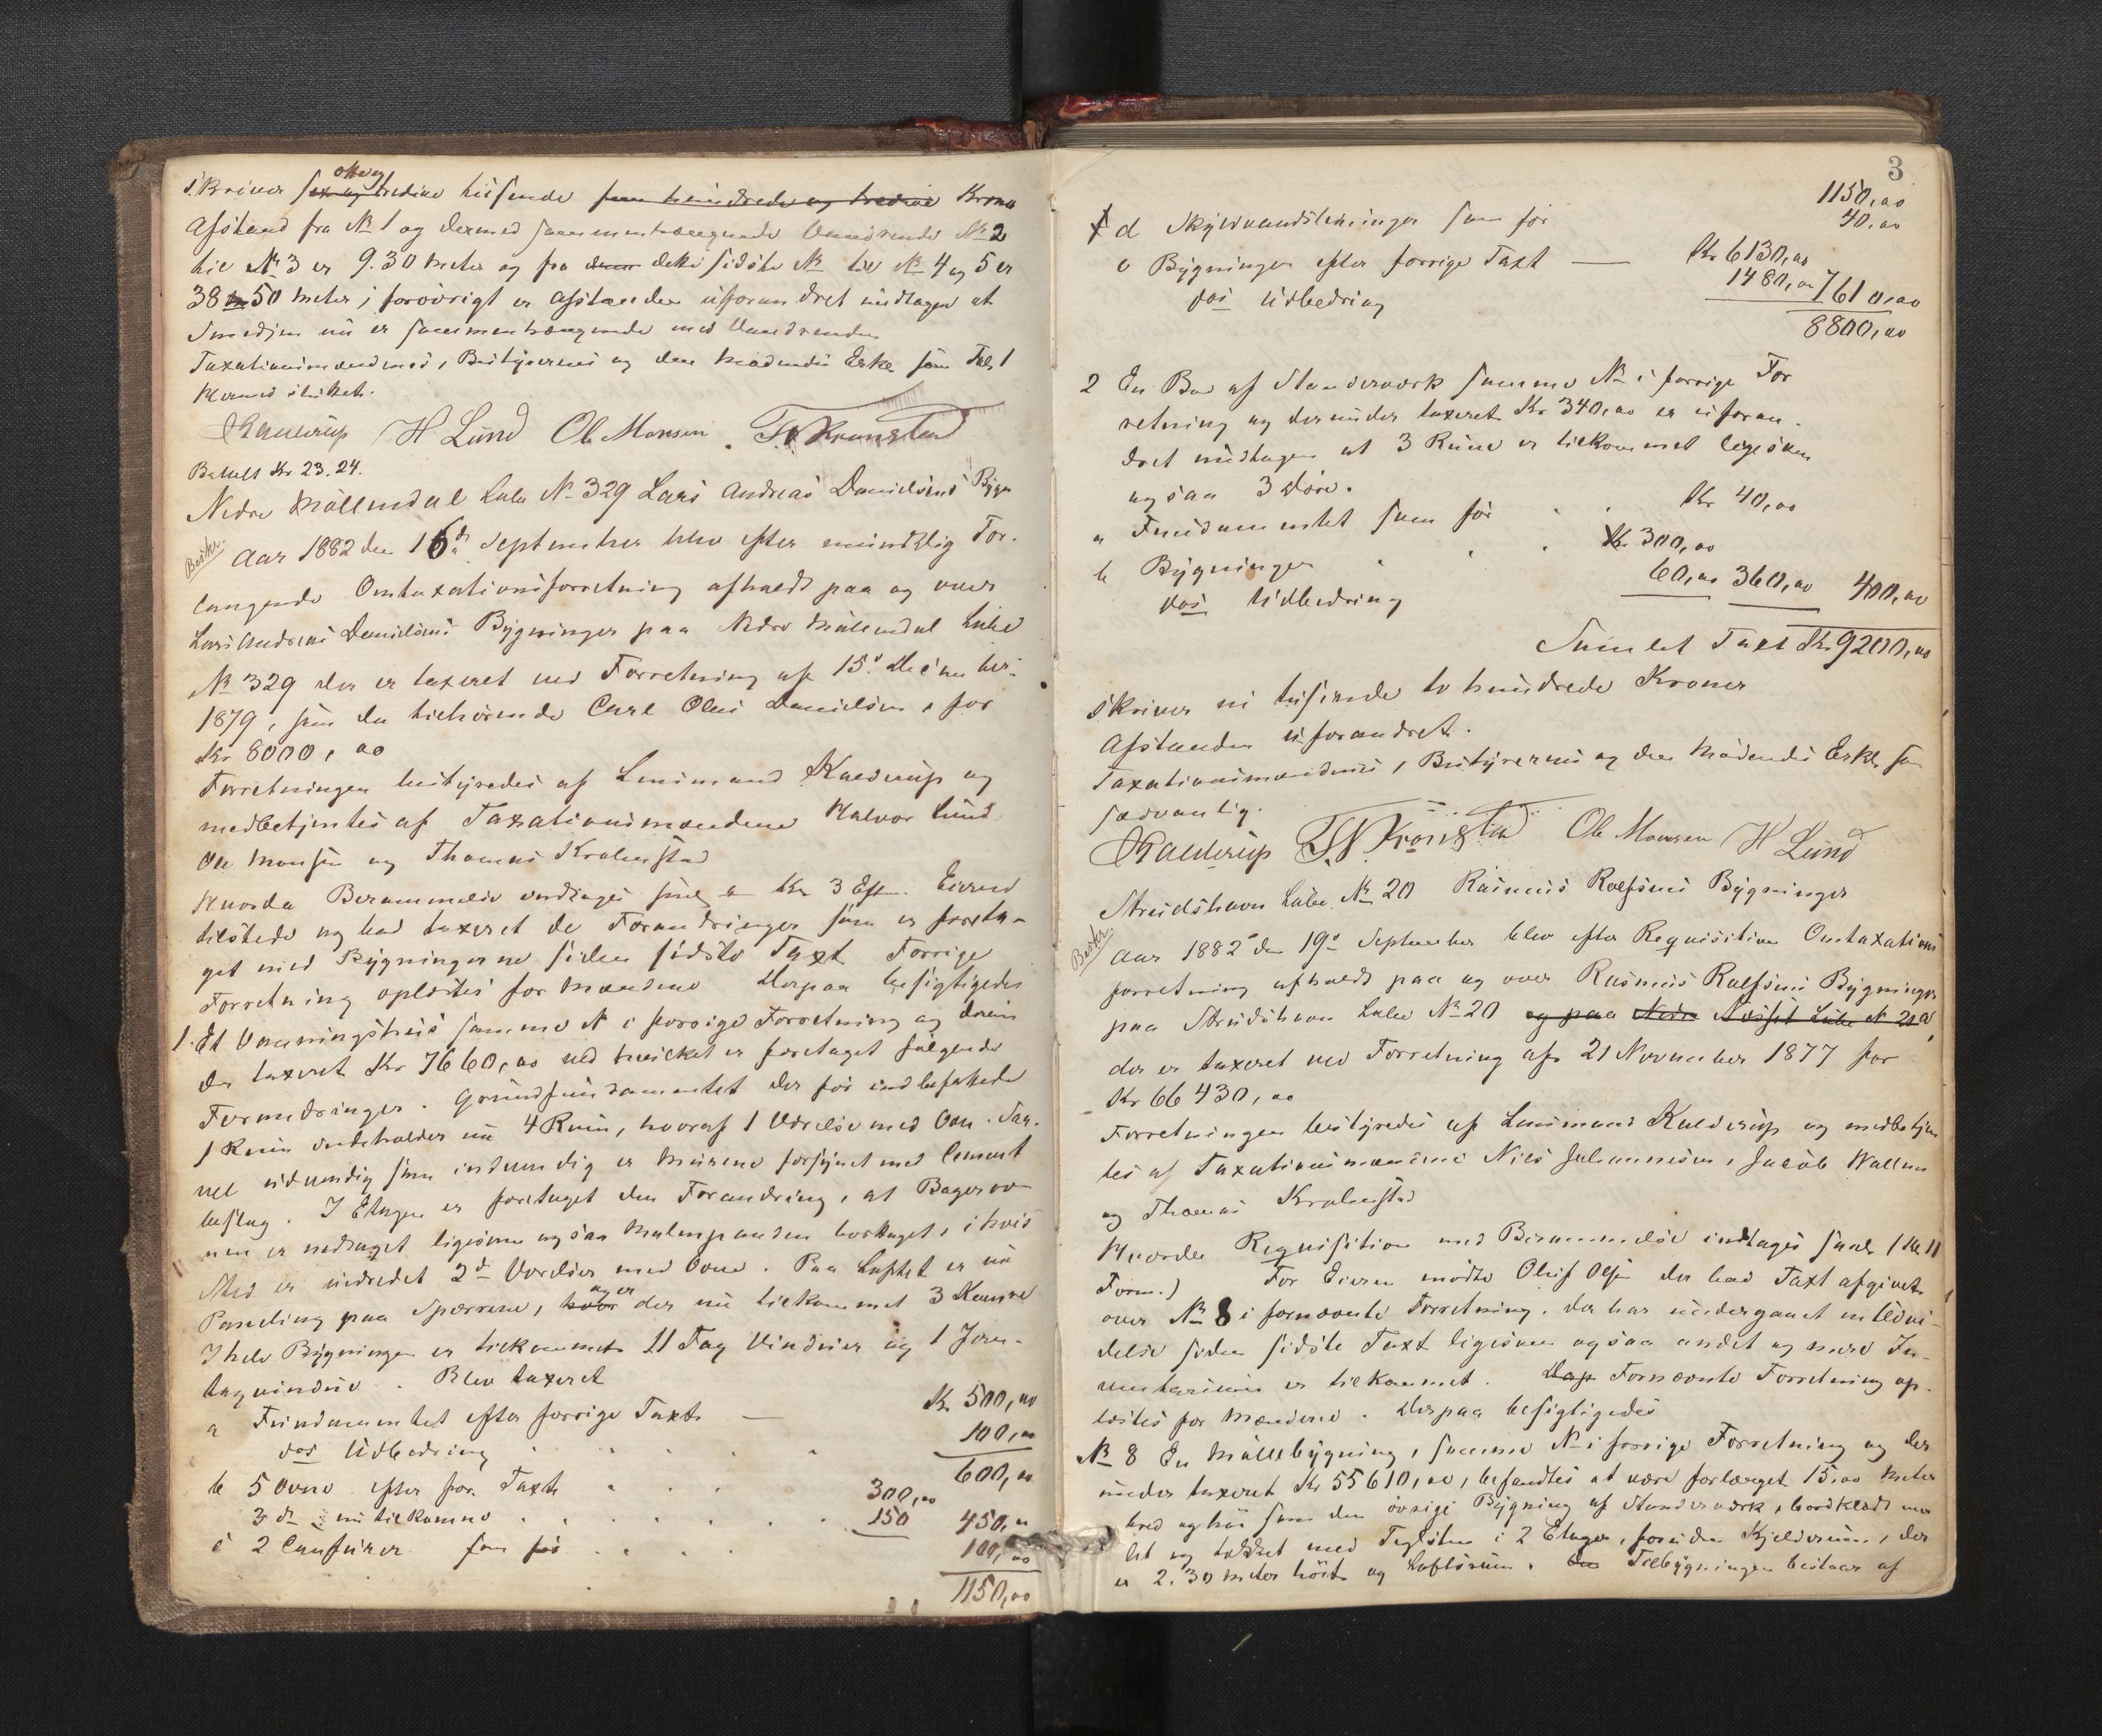 skriver otte og tredive tusende fem hundrede og tredive Kroner
Afstand fra № 1 og dermed sammenhængende Vandrende № 2
til № 3 er 9.30 Meter og fra den dette sidste № til № 4 og 5 er
38 50 Meter; forøvrigt er Afstanden uforandret undtagen at
Smedjen nu er sammenhængende med Vandrenden
Taxationsmændene, Bestyrerens og den mødendes Erkl. som Fol. 1
Hermed sluttet.
JKaldrup H Lund Ole Monsen. T. Kronstad
Betalt Kr 23.24.
Nedre Møllendal Løbe № 329 Lars Andreas Danielsens Bygn
Beskr.
Aar 1882 den 16de September blev efter mundtlig For-
langende Omtaxationsforretning afholdt paa og over
Lars Andreas Danielsens Bygninger paa Nedre Møllendal Løbe
№ 329 der er taxeret ved Forretning af 15d December
1879, som da tilhørende Carl Olai Danielsen, for
Kr 8000,00
Forretningen bestyredes af Lensmand Kaldrup og
medbetjentes af Taxationsmændene Halvor Lund
Ole Monsen og Thomas Krohnstad
Hvorda Berammelse vedtages Kl 3 Efm. Eieren
tilstede og bad taxeret de Forandringer som er foreta-
get med Bygningerne siden sidste Taxt. Forrige
Forretning oplæstes for Mændene Derpaa besigtigedes
1. Et Vaaningshus samme № i forrige Forretning og derun
der taxeret Kr 7660,00 ved hvilket er foretaget følgende
Forandringer. Grundfundamentet der før indbefattede
1 Rum indeholder nu 4 Rum, hvoraf 1 Værelse med Ovn. Saa-
vel udvendig som indvendig er Murene forsynet med Cement
beslag. I Etagen er foretaget den Forandring, at Bagerov-
nen er nedtaget ligesom ogsaa Malmpanden borttaget, i hvis
Sted er indredet 2de Værelser med Ovne. Paa Loftet er nu
Paneling paa Spærrene, hvor og er der nu tilkommet 3 Kamre
I hele Bygningen er tilkommet 11 Fag Vinduer og 1 Jern-
tagvindue. Blev taxeret
a Fundamentet efter forrige Taxt — Kr 500,00
for Udbedring 100,00
600,00
b 5 Ovne efter for. Taxt 300,00
3 do nu tilkomne 150 450,00
c 2 Comfurer som før 100,00
1150,00
3
1150,00
d Skyldvandsledninger som før 40,00
e Bygningen efter forrige Taxt — Kr 6130,00
for Udbedring 1480,00 7610,00
8800,00
2 En Bod af Stænderværk samme № i forrige For
retning og derunder taxeret Kr 340,00 er uforan-
dret undtagen at 3 Rum er tilkommet ligesom
ogsaa 3 Døre.
a Fundamentet som før Kr 40,00
b Bygningen Kr 300,00
for Udbedring 60,00 360,00 400,00
Samlet Taxt Kr 9200,00
skriver ni tusinde to hundrede Kroner
Afstanden uforandret.
Taxationsmændenes, Bestyrerens og den Mødendes Erkl. som
sædvanlig.
JKaldrup T. Kronstad Ole Monsen H Lund
Strudshavn Løbe № 20 Rasmus Rolfsens Bygninger
Beskr.
Aar 1882 den 19de September blev efter Requisition Omtaxations
forretning afholdt paa og over Rasmus Rolfsens Bygninger
paa Strudshavn Løbe № 20 og paa Nedre Løbe № 21a
der er taxeret ved Forretning af 21 November 1877 for
Kr 66430,00
Forretningen bestyredes af Lensmand Kaldrup og medbetjen
tes af Taxationsmændene Niels Johannesen, Jacob Wallem
og Thomas Krohnstad
Hvorda Requisition med Berammelse indtages (Kl 11
Form.) For Eieren mødte Oluf Olsen der bad Taxt afgivet
over № 8 i fornævnte Forretning, der har undergaaet en Udvi-
delse siden sidste Taxt ligesom ogsaa andet og mere In-
ventarium er tilkommet. Fornævnte Forretning op-
læstes for Mændene. Derpaa besigtigedes
№ 8 En Møllebygning, samme № i forrige Forretning og der
under taxeret Kr 55610,00, befandtes at være forlænget 15,00 Meter
bred og høi som den øvrige Bygning af Stænderværk, bordklædt ma
let og tækket med Teglsten i 2 Etager, foruden Kjelderrum, der
er 2.30 Meter høit og Loftsrum. Tilbygningen bestaar af